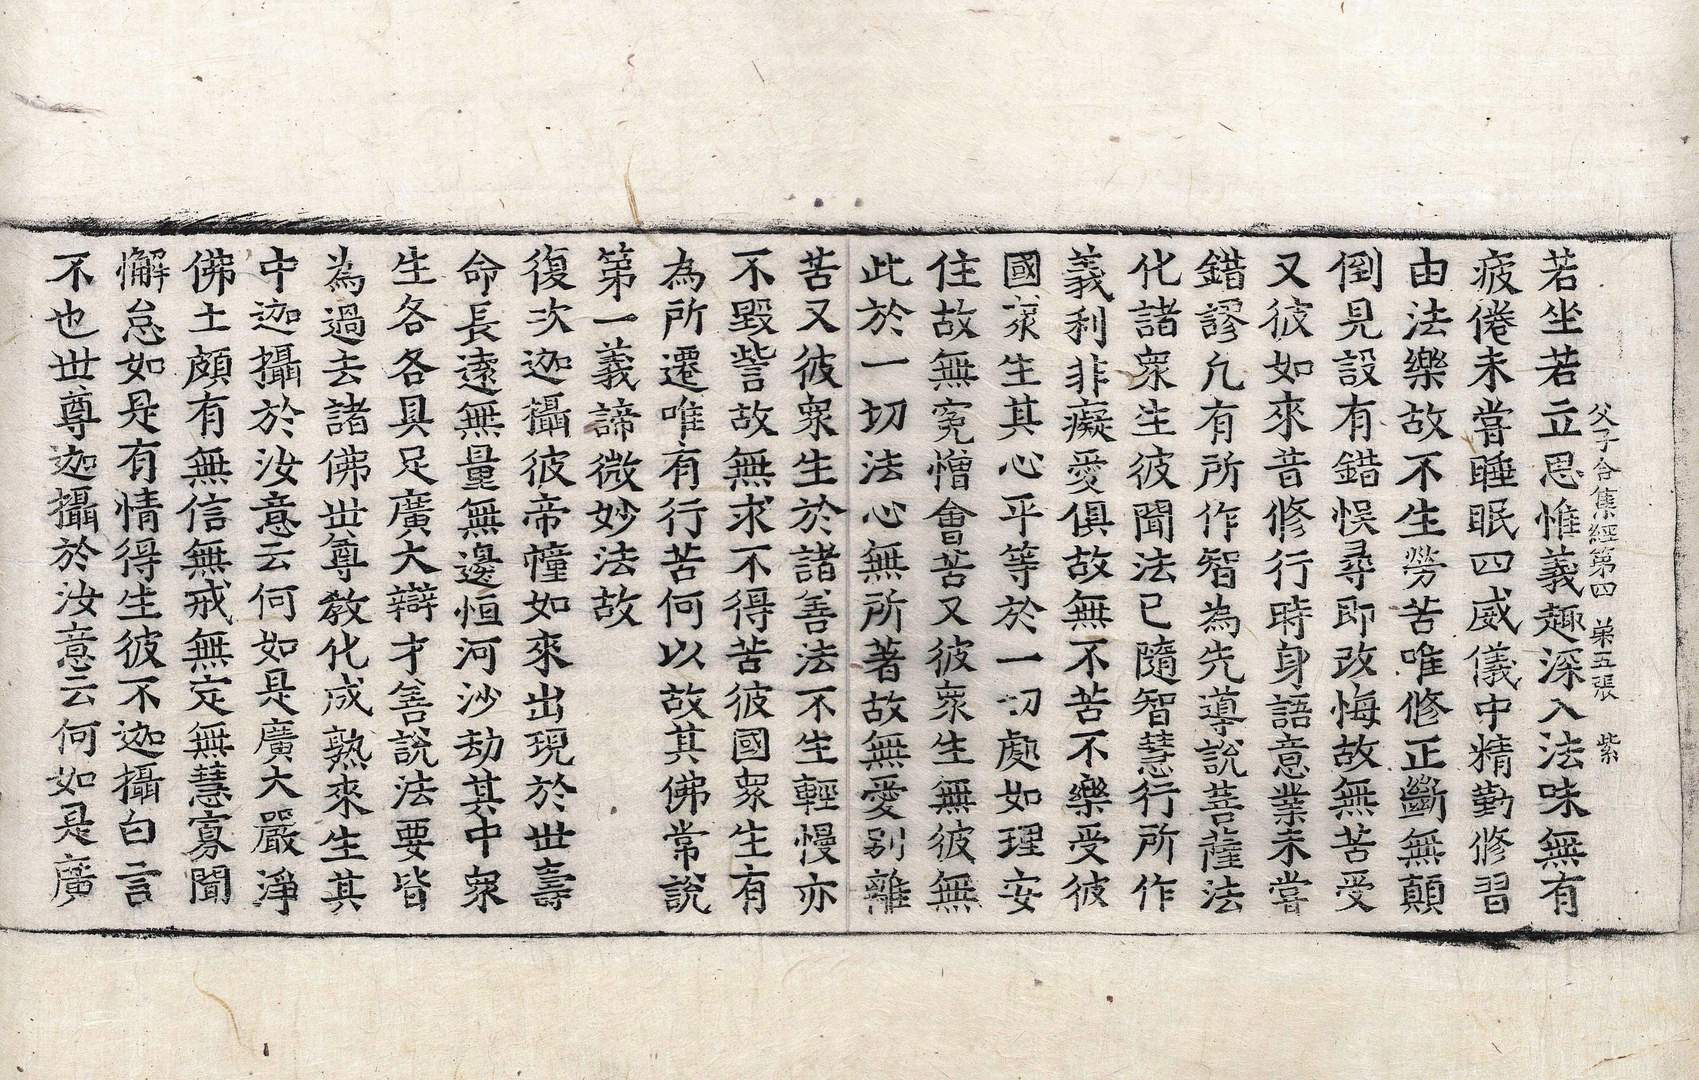 父子合集經第四　第五張　紫
若坐若立思惟義趣深入法味無有
疲倦未嘗睡眠四威儀中精勤修習
由法樂故不生勞苦唯修正斷無顛
倒見設有錯悞尋即改悔故無苦受
又彼如來昔修行時身語意業未嘗
錯謬凢有所作智為先導說菩薩法
化諸衆生彼聞法已隨智慧行所作
義利非癡愛俱故無不苦不樂受彼
國衆生其心平等於一切處如理安
住故無冤憎會苦又彼衆生無彼無
此於一切法心無所著故無愛別離
苦又彼衆生於諸善法不生輕慢亦
不毀訾故無求不得苦彼國衆生有
為所遷唯有行苦何以故其佛常說
第一義諦微妙法故
復次迦攝彼帝幢如來出現於世壽
命長遠無量無邊恒河沙劫其中衆
生各各具足廣大辯才善說法要皆
為過去諸佛世尊教化成熟來生其
中迦攝於汝意云何如是廣大嚴淨
佛土頗有無信無戒無定無慧寡聞
懈怠如是有情得生彼不迦攝白言
不也世尊迦攝於汝意云何如是廣